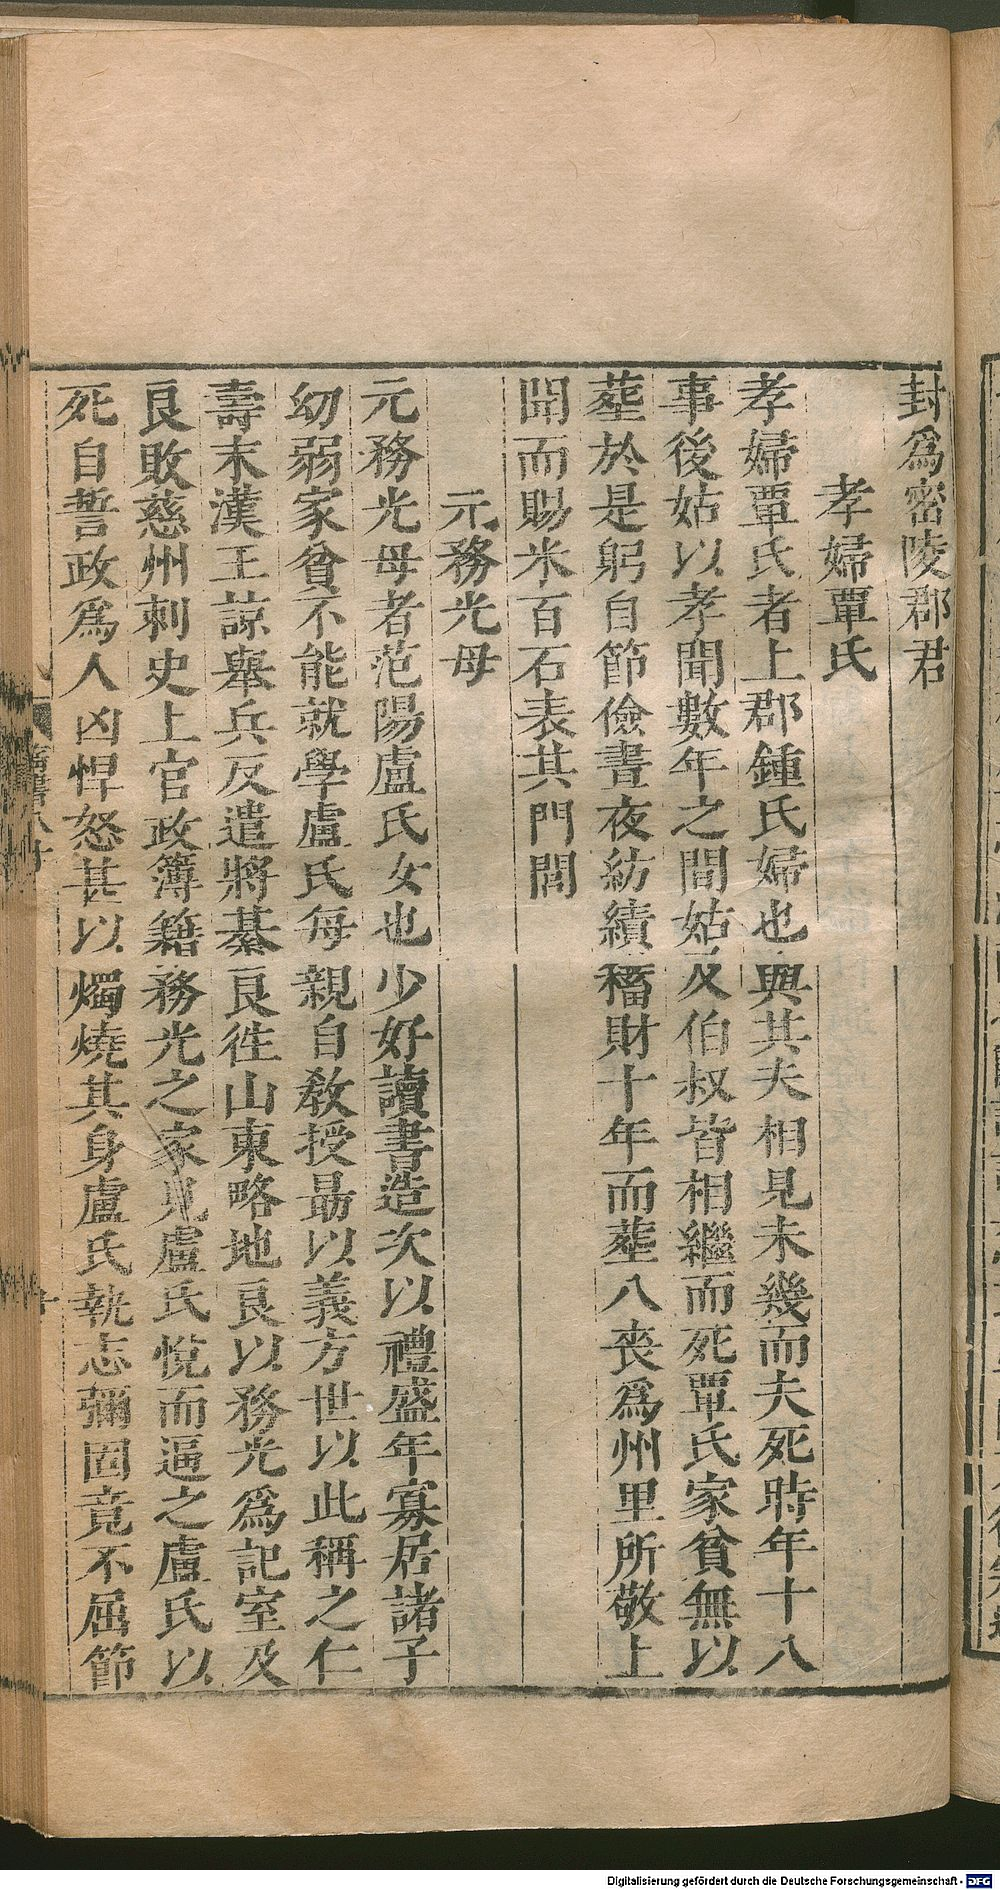 封爲密陵郡君
孝婦覃氏
孝婦覃氏者上郡鍾氏婦也與其夫相見未幾而夫死時年十八
事後姑以孝聞數年之間姑及伯叔皆相繼而死覃氏家貧無以
葬於是躬自節儉晝夜紡績稸財十年而葬八喪爲州里所敬上
聞而賜米百石表其門閭
元務光母
元務光母者范陽盧氏女也少好讀書造次以禮盛年寡居諸子
幼弱家貧不能就學盧氏每親自敎授勗以義方世以此稱之仁
壽末漢王諒舉兵反遣將綦良徃山東略地良以務光爲記室及
良敗慈州刺史上官政簿籍務光之家見盧氏悅而逼之盧氏以
死自誓政爲人凶悍怒甚以燭燒其身盧氏執志彌固竟不屈節
Digitalisierung gefördert durch die Deutsche Forschungsgemeinschaft - DFG